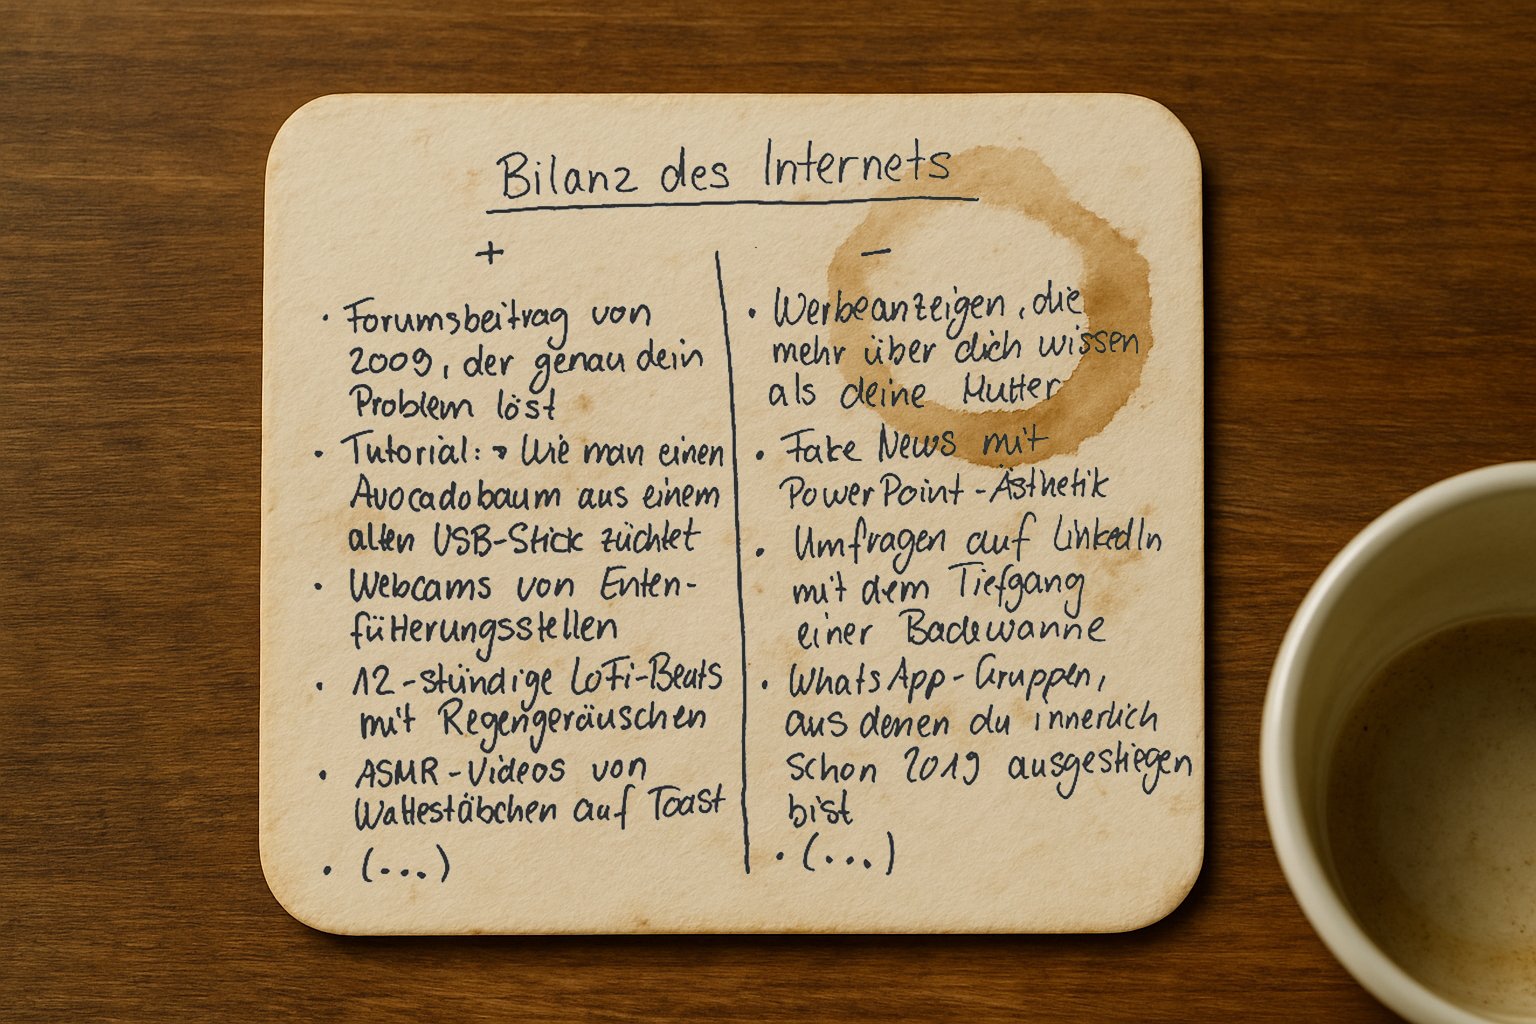 Bilanz des Internets
+
· Forumsbeitrag von
2009, der genau dein
Problem löst
· Tutorial: → Wie man einen
Avocadobaum aus einem
alten USB-Stick züchtet
· Webcams von Enten-
fütterungsstellen
· 12-stündige LoFi-Beats
mit Regengeräuschen
· ASMR-Videos von
Wattestäbchen auf Toast
· (...)
−
· Werbeanzeigen, die
mehr über dich wissen
als deine Mutter
· Fake News mit
PowerPoint-Ästhetik
· Umfragen auf LinkedIn
mit dem Tiefgang
einer Badewanne
· WhatsApp-Gruppen,
aus denen du innerlich
schon 2019 ausgestiegen
bist
· (...)